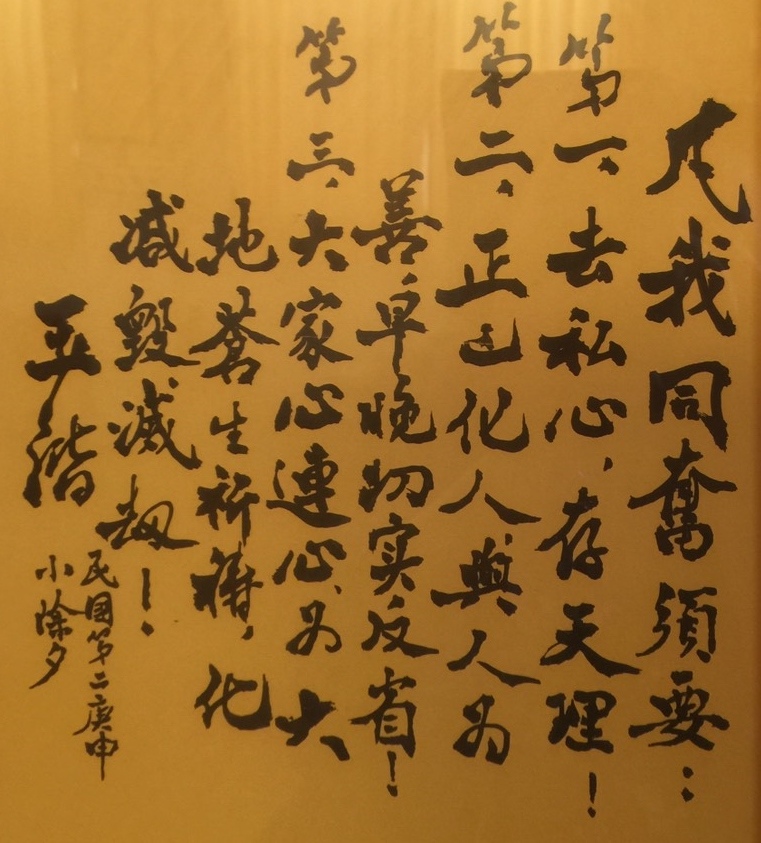 凡我同奮須要：
第一、去私心，存天理！
第二、正己化人與人為
善，早晚切实反省！
第三、大家心連心，为大
地蒼生祈禱，化
减毀滅劫！
民国第二庚申
小除夕